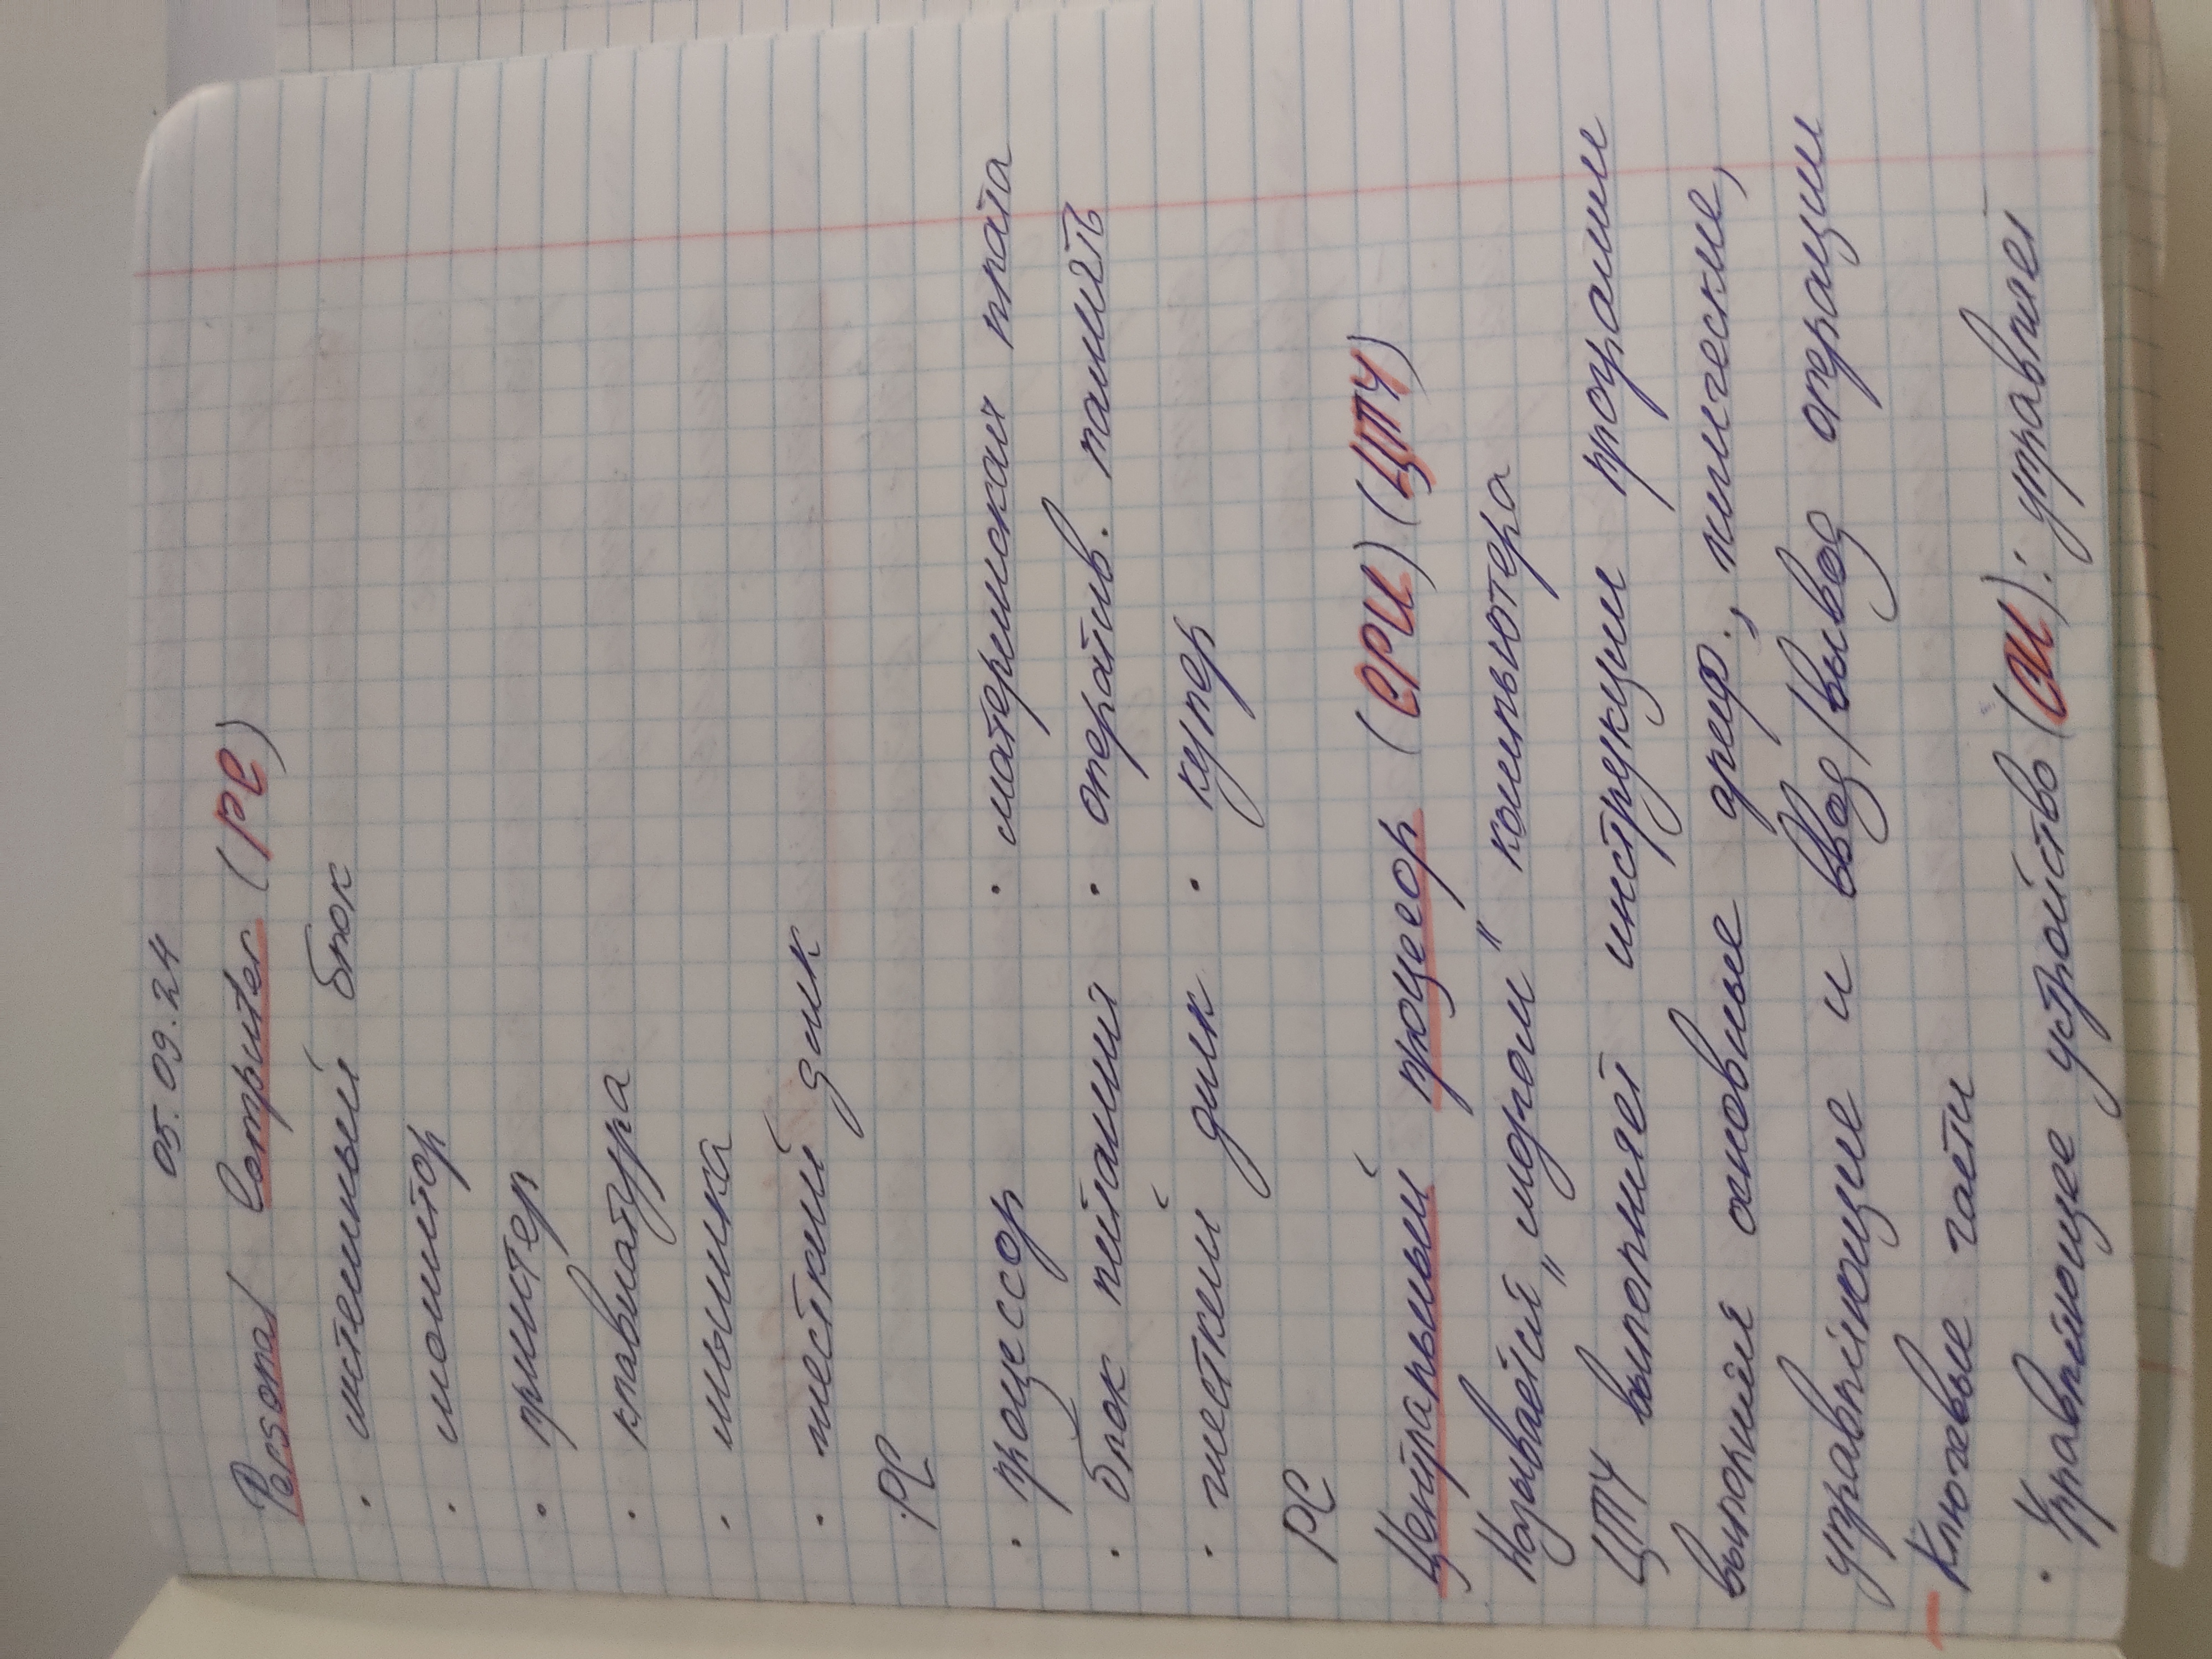 05.09.24
Personal Computer (PC)
· системный блок
· монитор
· принтер
· клавиатура
· мышка
· жесткий диск
PC
· процессор · материнская плата
· блок питания · оператив. память
· жесткий диск · кулер
PC
Центральный процессор (CPU) (ЦПУ)
Называется „мозгом" компьютера
ЦПУ выполняет инструкции программ
выполняя основные ариф., логические,
управляющие и ввод/вывод операции
Ключевые части
· Управляющее устройство (CU): управляет